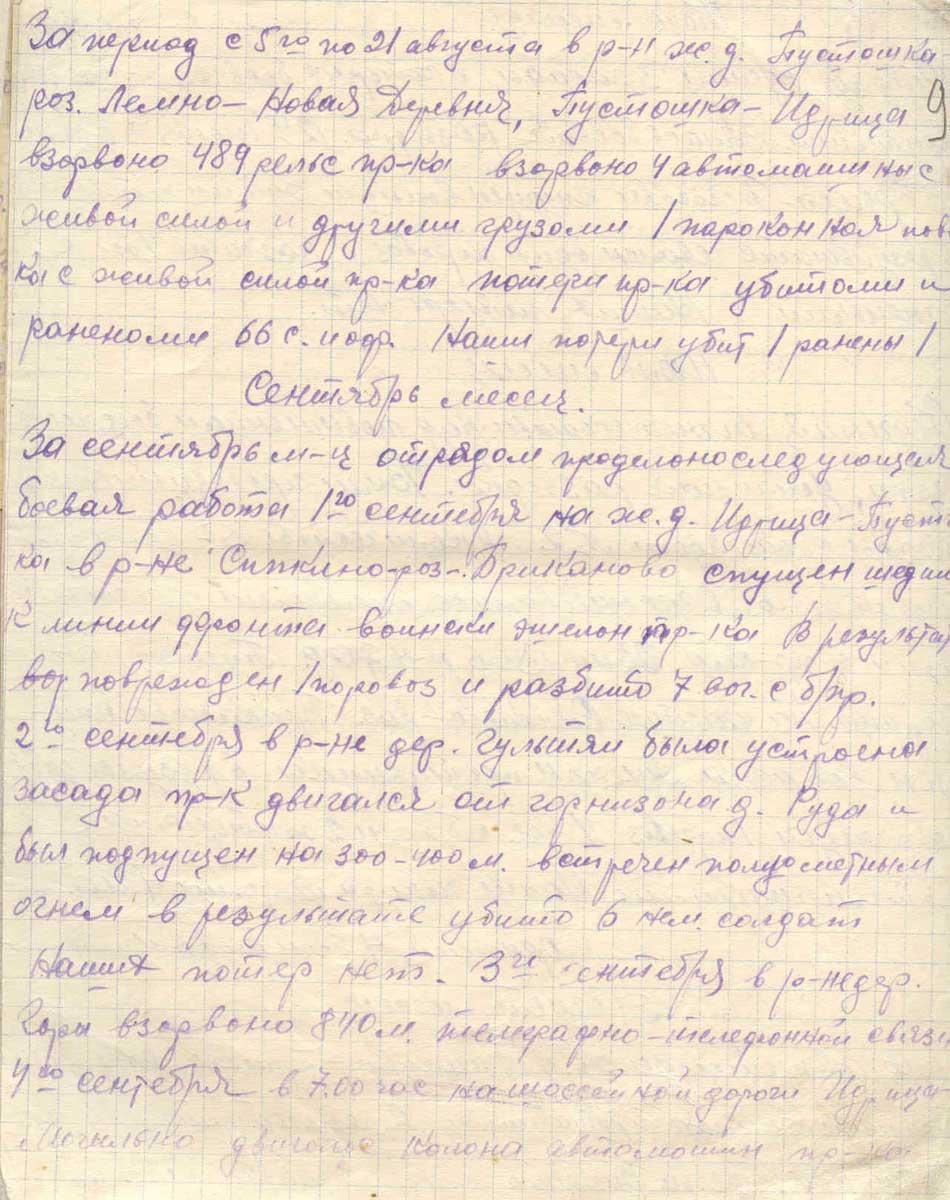 За период с 5го по 21 августа в р-н ж.д. Пустошка
роз. Лемно - Новая Деревня, Пустошка - Идрица
9
взорвоно 489 рельс пр-ка взорвоно 4 автомашины с
живой силой и другими грузоми 1 пароконная пов-
ка с живой силой пр-ка потери пр-ка убитоми и
раненоми 66 с. и оф. Наши потери убит 1 ранены 1
Сентябрь месец.
За сентябрь м-ц отрядом проделоно следующея
боевая работа 1го сентебря на ж.д. Идрица - Пуст
ка в р-не роз. Бриканово спущен шедши
к линии фронта воински эшелон пр-ка В результа
повреждён 1 поровоз и разбито 7 ваг. с б/пр.
2го сентебря в р-не дер. Гультяи была устроена
засада пр-к двигался от горнизона д. Руда и
был подпущен на 300-400 м. встречен пулуометным
огнем в результате убито 6 нем. солдат
Наших потер нет. 3го сентебря в р-не дер.
взорвоно 840 м. телеграфно-телефонной связи
4го сентебря в 7.00 час на шоссейной дороги Идрица
двигалас калона автомошин пр-ка